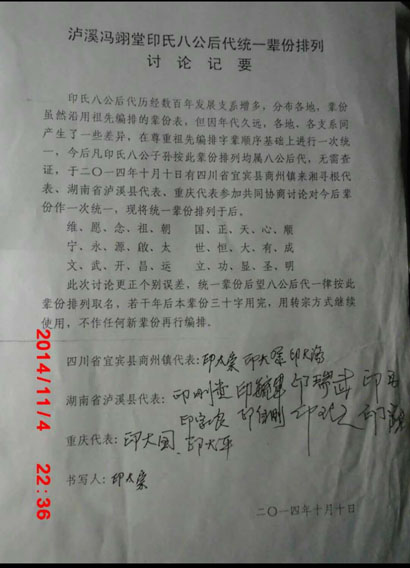 泸溪冯翊堂印氏八公后代统一辈份排列
讨论记要
印氏八公后代历经数百年发展支系增多，分布各地，辈份
虽然沿用祖先编排的辈份表，但因年代久远，各地、各支系间
产生了一些差异，在尊重祖先编排字辈顺序基础上进行一次统
一，今后凡印氏八公子孙按此辈份排列均属八公后代，无需查
证，于二〇一四年十月十日有四川省宜宾县商州镇来湘寻根代
表、湖南省泸溪县代表、重庆代表参加共同协商讨论对今后辈
份作一次统一，现将统一辈份排列于后，
维、愿、念、祖、朝 国、正、天、心、顺
宁、永、源、啟、太 世、恒、大、有、成
文、武、开、昌、运 立、功、显、圣、明
此次讨论更正个别误差，统一辈份后望八公后代一律按此
辈份排列取名，若干年后本辈份三十字用完，用转宗方式继续
使用，不作任何新辈份再行编排。
四川省宜宾县商州镇代表：
湖南省泸溪县代表：
重庆代表：印大国、印大平
书写人：
二〇一四年十月十日
2014/11/4 22:36